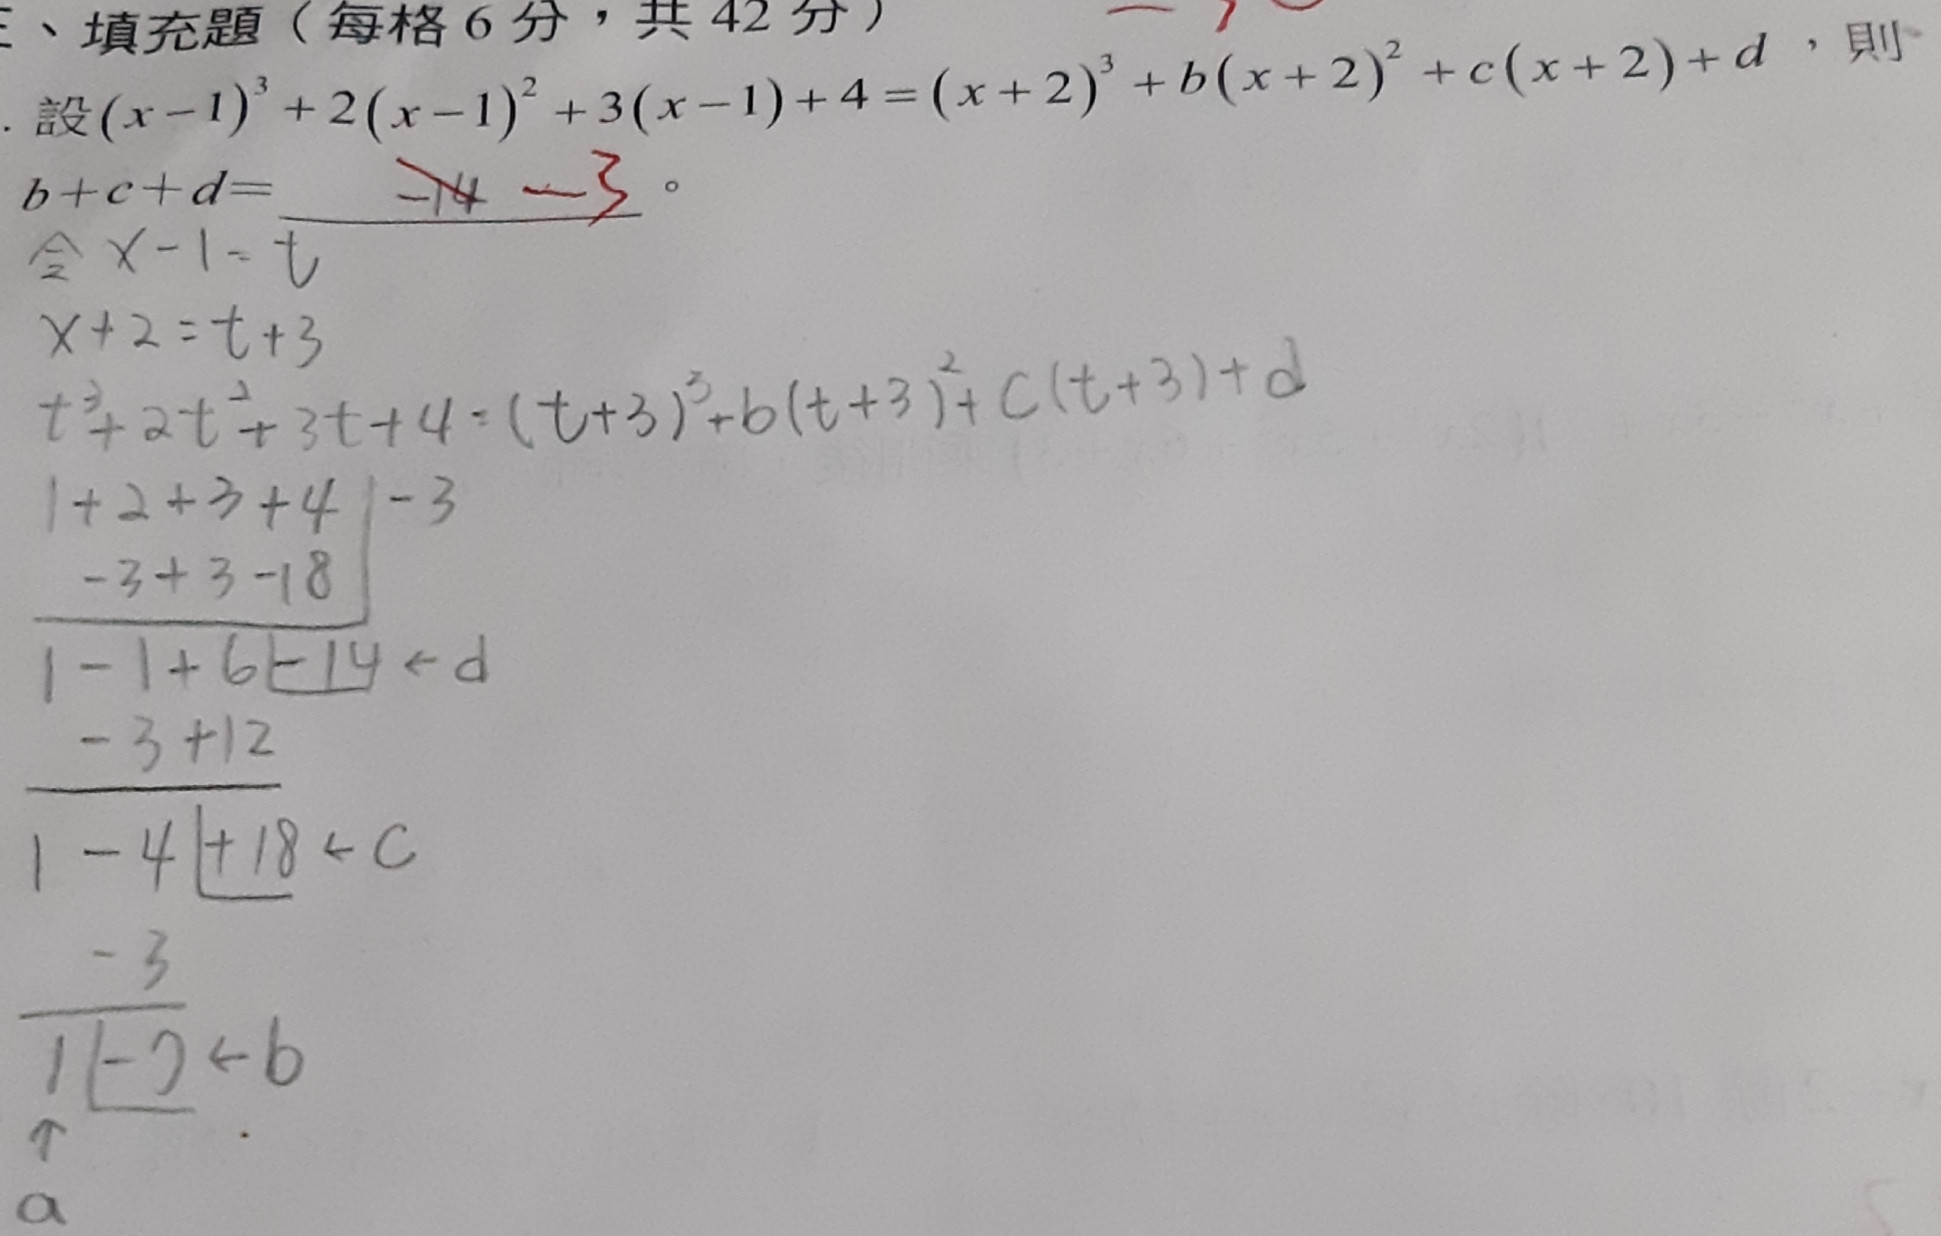 、填充題（每格6分，共42分）
. 設(x-1)³+2(x-1)²+3(x-1)+4=(x+2)³+b(x+2)²+c(x+2)+d，則
b+c+d= -14 -3 。
令 x-1=t
x+2=t+3
t³+2t²+3t+4=(t+3)³+b(t+3)²+c(t+3)+d
1+2+3+4|-3
-3+3-18
1-1+6|-14←d
-3+12
1-4|+18←c
-3
1|-7←b
↑
a